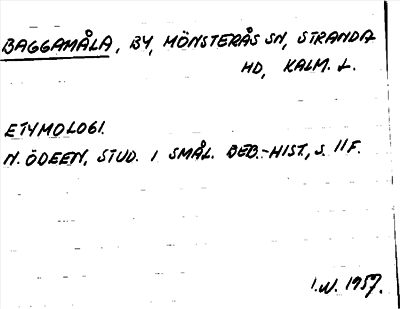 BAGGAMÅLA, BY, MÖNSTERÅS SN, STRANDA
HD, KALM. L.
ETYMOLOGI.
N. ÖDEEN, STUD. I SMÅL. BEB.-HIST., S. 11F.
I.W. 1957.